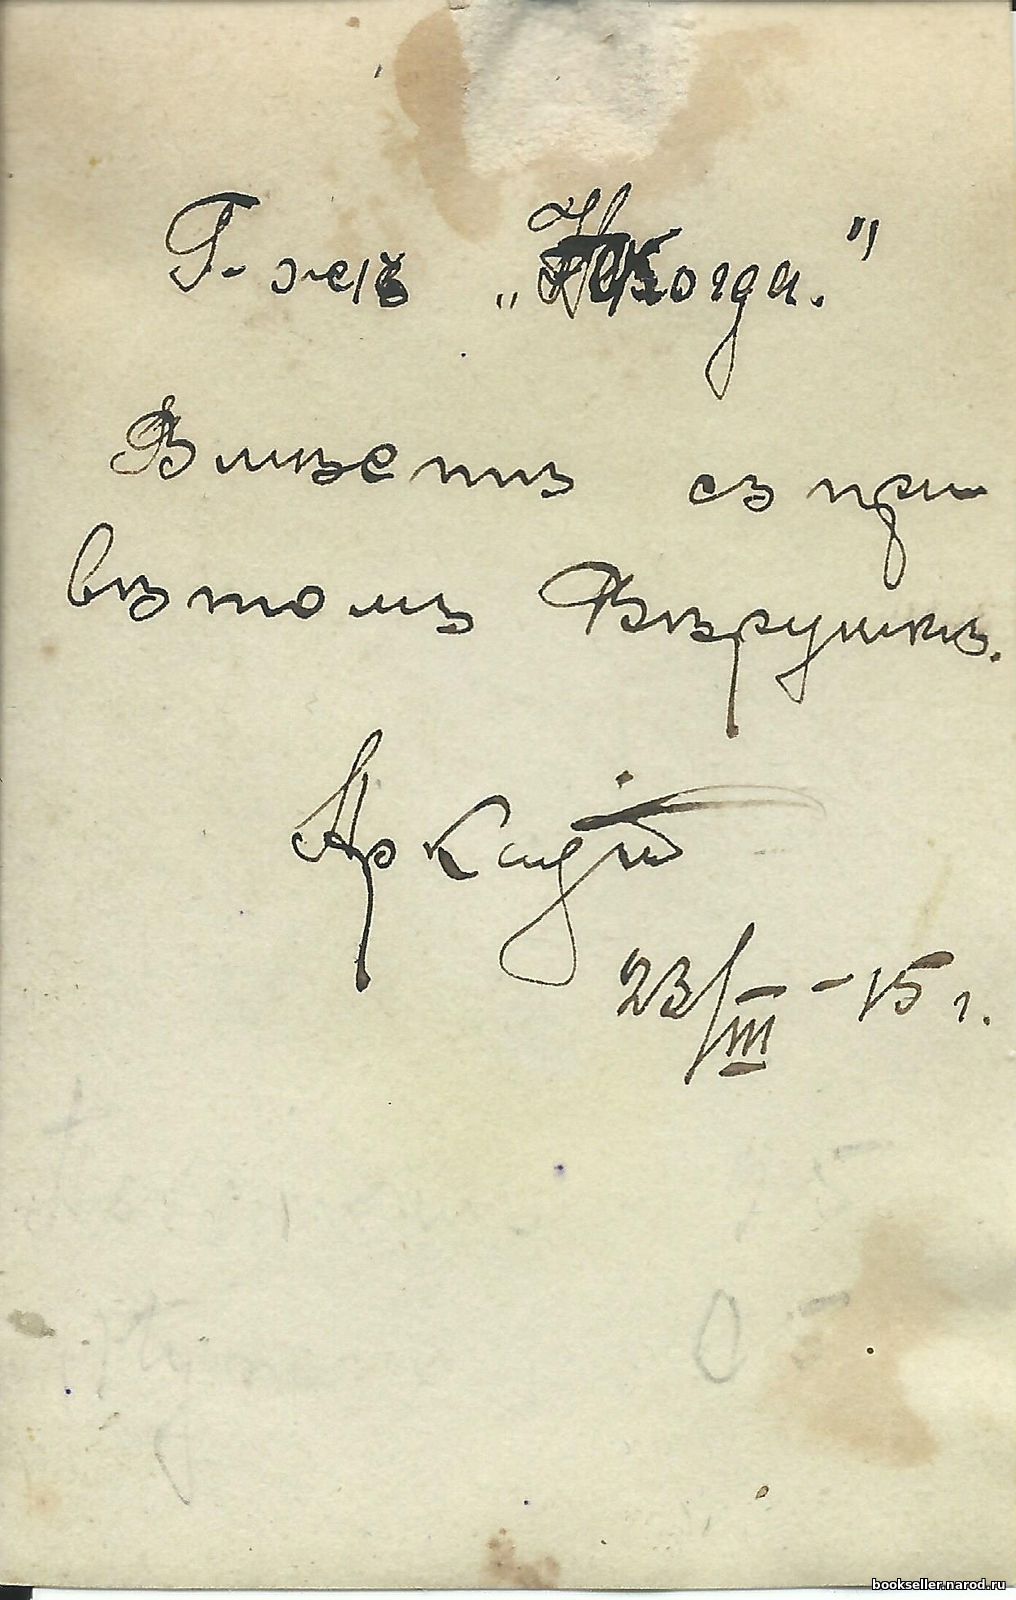 Г-жѣ „Некогда."
Вмѣстѣ съ при
вѣтомъ Вѣрушкѣ.
Аркадій
23/III - 15 г.
bookseller.narod.ru